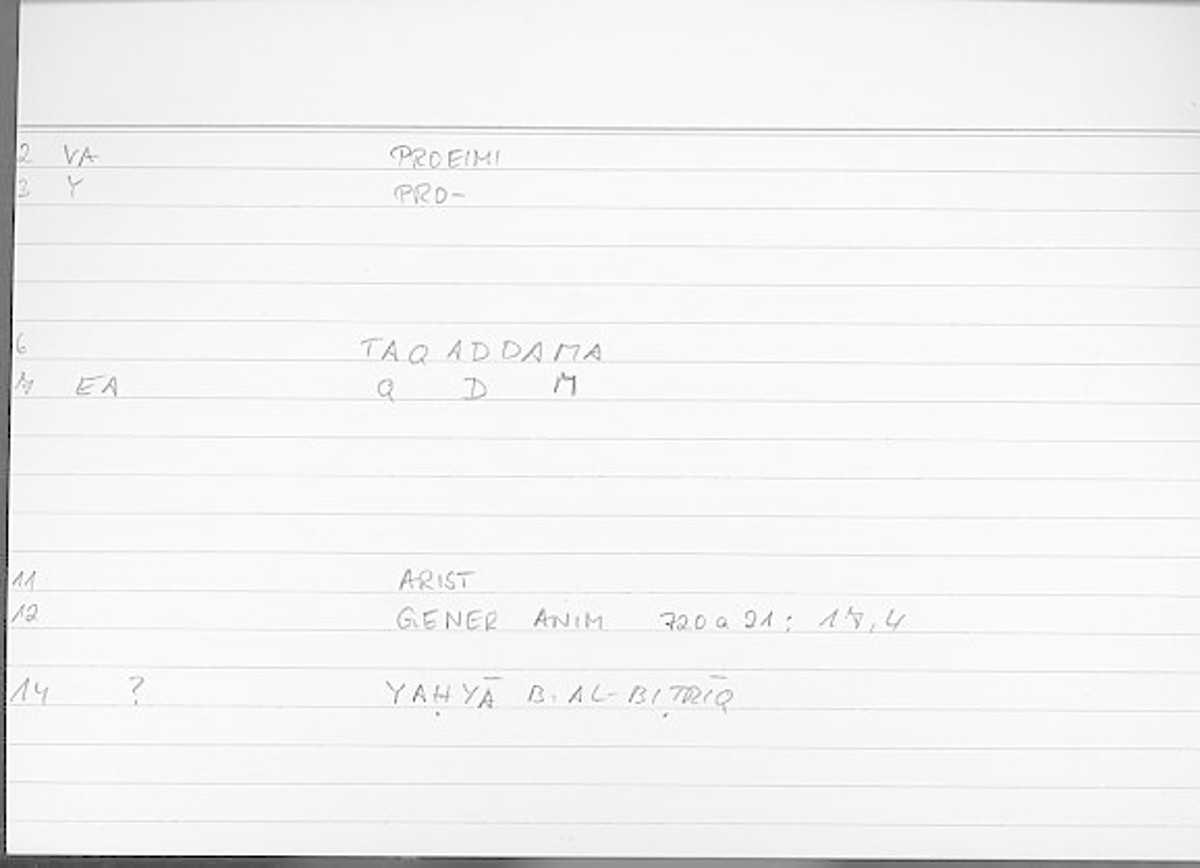 2 VA PROEIMI
3 Y PRO-
6 TAQADDAMA
7 EA Q D M
11 ARIST
12 GENER ANIM 720a21: 17,4
14 ? YAḤYĀ B. AL-BIṬRĪQ